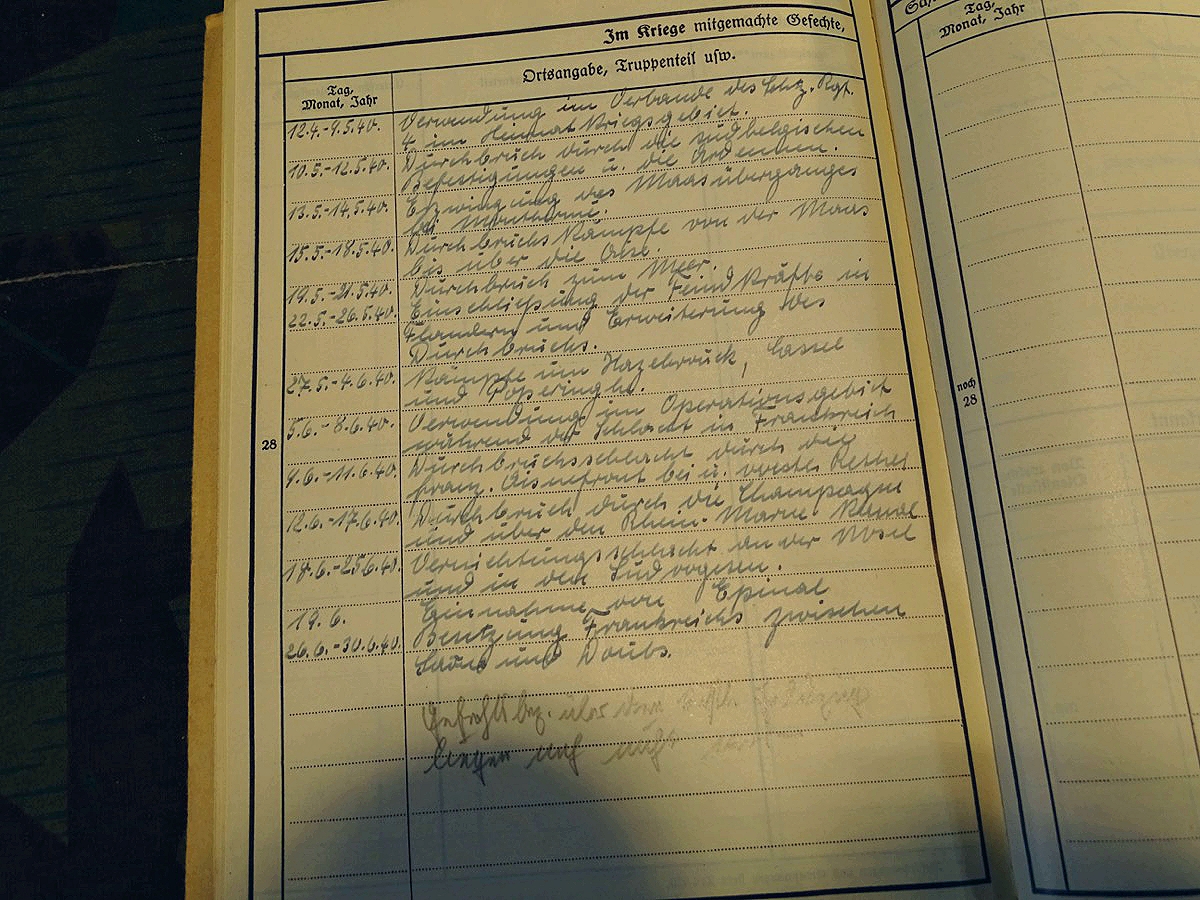 Im Kriege mitgemachte Gefechte,
Tag,
Monat, Jahr
Ortsangabe, Truppenteil usw.
12.4.-9.5.40. Verwendung im Verbande des Schtz. Rgt.
4 im Heimatkriegsgebiet.
10.5.-12.5.40. Durchbruch durch die südbelgischen
Befestigungen u. die Ardennen.
13.5.-14.5.40. Erzwingung des Maasüberganges
bei Monthermé.
15.5.-18.5.40. Durchbruchskämpfe von der Maas
bis über die Oise.
19.5.-21.5.40. Durchbruch zum Meer.
22.5.-26.5.40. Einschließung der Feindkräfte in
Flandern und Erweiterung des
Durchbruchs.
27.5.-4.6.40. Kämpfe um Hazebrouck, Cassel
und Poperinghe.
28
5.6.-8.6.40. Verwendung im Operationsgebiet
während der Schlacht in Frankreich
9.6.-11.6.40. Durchbruchsschlacht durch die
franz. Aisnefront bei u. westl. Rethel
12.6.-17.6.40. Durchbruch durch die Champagne
und über den Rhein-Marne Kanal
18.6.-25.6.40. Vernichtungsschlacht an der Mosel
und in den Südvogesen.
19.6. Einnahme von Epinal
26.6.-30.6.40. Besetzung Frankreichs zwischen
Saône und Doubs.
über den
liegen noch nicht
Tag,
Monat, Jahr
noch
28